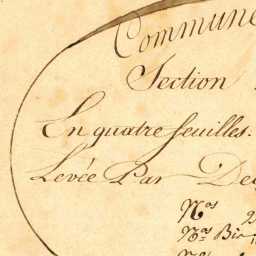 Commune
Section
En quatre feuilles.
Levée Par De
Nos
Nos Bis
Nos